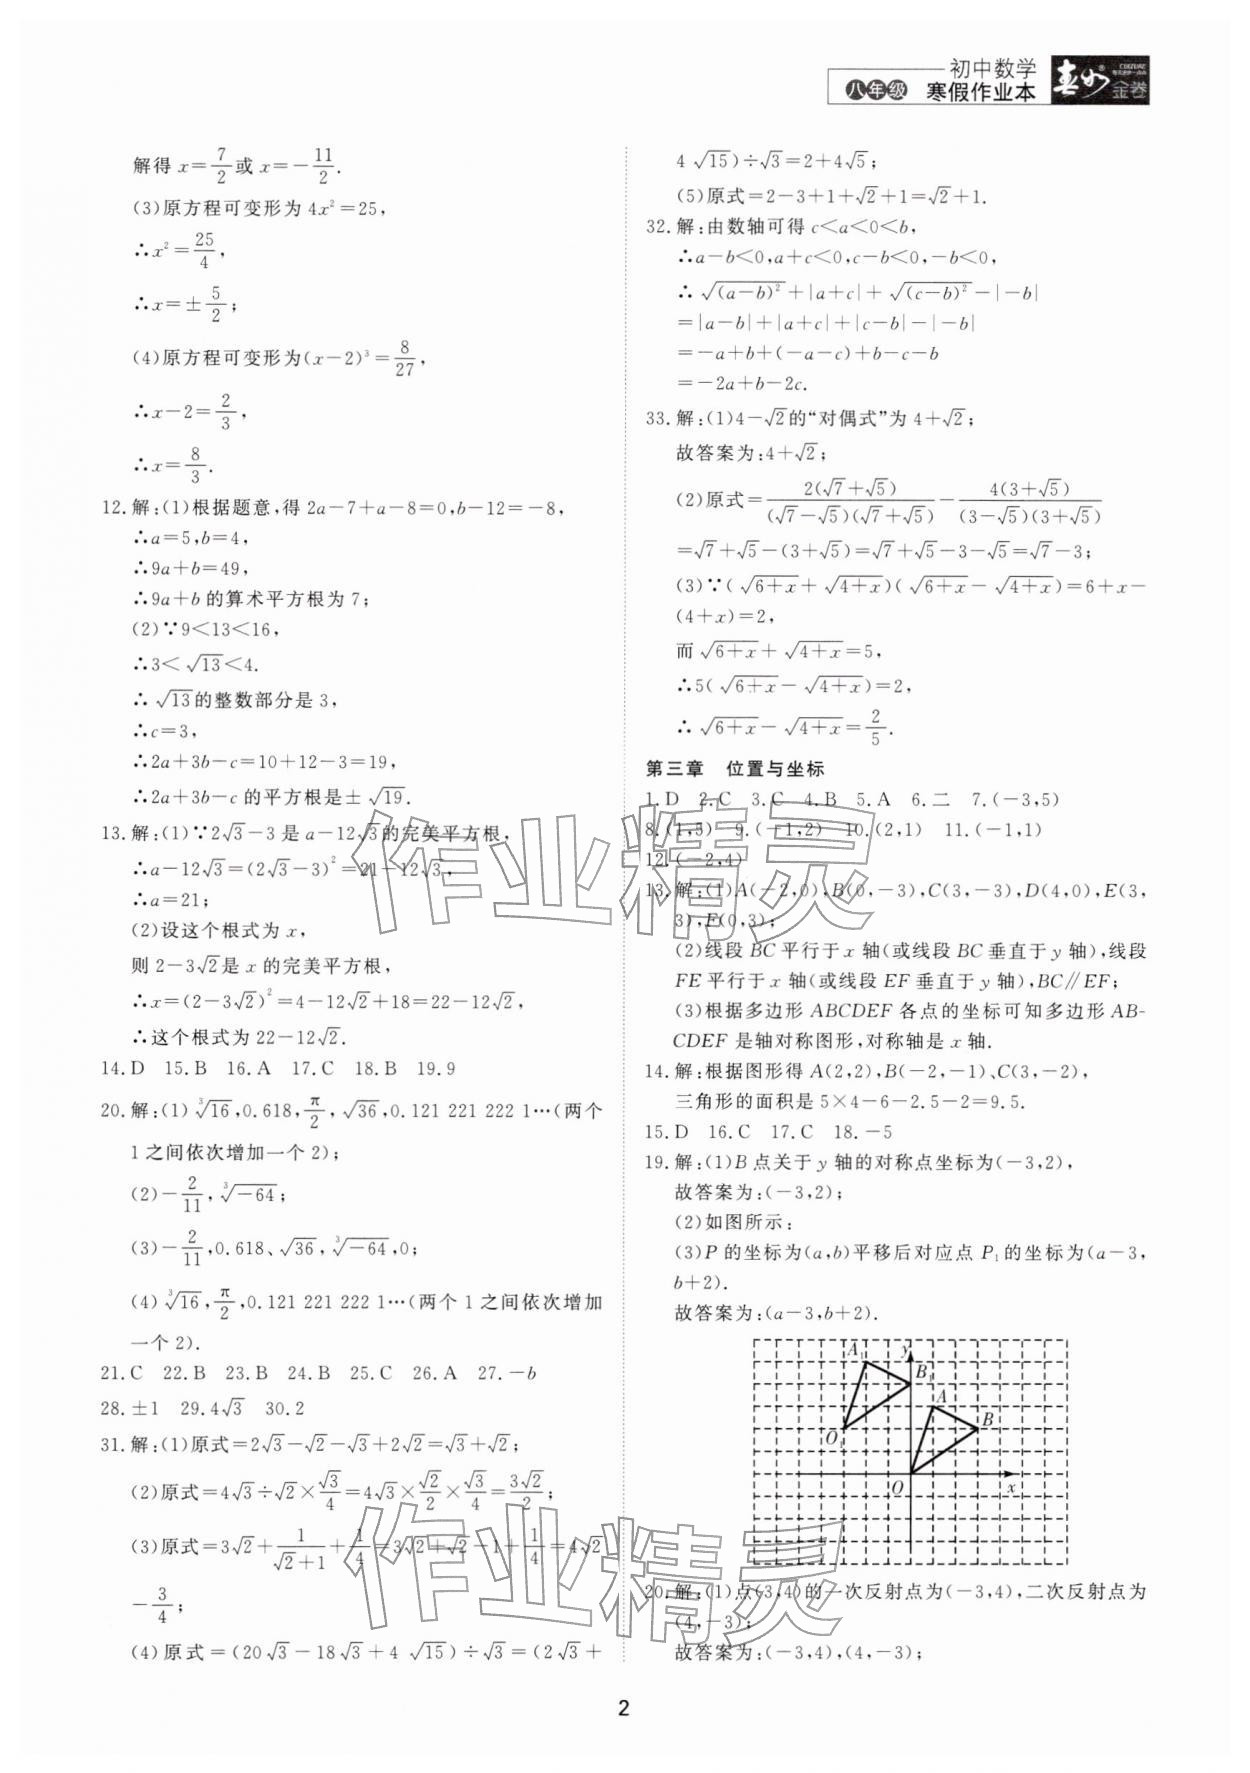 初中数学
八年级 寒假作业本
金卷
解得 x=7/2或 x=-11/2.
(3)原方程可变形为 4x²=25,
∴x²=25/4,
∴x=±5/2;
(4)原方程可变形为(x-2)³=8/27,
∴x-2=2/3,
∴x=8/3.
12.解:(1)根据题意,得 2a-7+a-8=0,b-12=-8,
∴a=5,b=4,
∴9a+b=49,
∴9a+b 的算术平方根为 7;
(2)∵9<13<16,
∴3<√13<4.
∴√13的整数部分是 3,
∴c=3,
∴2a+3b-c=10+12-3=19,
∴2a+3b-c 的平方根是±√19.
13.解:(1)∵2√3-3 是 a-12√3的完美平方根,
∴a-12√3=(2√3-3)²=21-12√3,
∴a=21;
(2)设这个根式为 x,
则 2-3√2是 x 的完美平方根,
∴x=(2-3√2)²=4-12√2+18=22-12√2,
∴这个根式为 22-12√2.
14.D 15.B 16.A 17.C 18.B 19.9
20.解:(1)∛16,0.618,π/2,√36,0.121 221 222 1…(两个
1 之间依次增加一个 2);
(2)-2/11,∛-64;
(3)-2/11,0.618、√36,∛-64,0;
(4)∛16,π/2,0.121 221 222 1…(两个 1 之间依次增加
一个 2).
21.C 22.B 23.B 24.B 25.C 26.A 27.-b
28.±1 29.4√3 30.2
31.解:(1)原式=2√3-√2-√3+2√2=√3+√2;
(2)原式=4√3÷√2×√3/4=4√3×√2/2×√3/4=3√2/2;
(3)原式=3√2+1/(√2+1)+1/4=3√2+√2-1+1/4=4√2
-3/4;
(4)原式=(20√3-18√3+4√15)÷√3=(2√3+
4√15)÷√3=2+4√5;
(5)原式=2-3+1+√2+1=√2+1.
32.解:由数轴可得 c<a<0<b,
∴a-b<0,a+c<0,c-b<0,-b<0,
∴√(a-b)²+|a+c|+√(c-b)²-|-b|
=|a-b|+|a+c|+|c-b|-|-b|
=-a+b+(-a-c)+b-c-b
=-2a+b-2c.
33.解:(1)4-√2的“对偶式”为 4+√2;
故答案为:4+√2;
(2)原式=2(√7+√5)/(√7-√5)(√7+√5)-4(3+√5)/(3-√5)(3+√5)
=√7+√5-(3+√5)=√7+√5-3-√5=√7-3;
(3)∵(√6+x+√4+x)(√6+x-√4+x)=6+x-
(4+x)=2,
而√6+x+√4+x=5,
∴5(√6+x-√4+x)=2,
∴√6+x-√4+x=2/5.
第三章 位置与坐标
1.D 2.C 3.C 4.B 5.A 6.二 7.(-3,5)
8.(1,5) 9.(-1,2) 10.(2,1) 11.(-1,1)
12.(-2,4)
13.解:(1)A(-2,0),B(0,-3),C(3,-3),D(4,0),E(3,
3),F(0,3);
(2)线段 BC 平行于 x 轴(或线段 BC 垂直于 y 轴),线段
FE 平行于 x 轴(或线段 EF 垂直于 y 轴),BC∥EF;
(3)根据多边形 ABCDEF 各点的坐标可知多边形 AB-
CDEF 是轴对称图形,对称轴是 x 轴.
14.解:根据图形得 A(2,2),B(-2,-1)、C(3,-2),
三角形的面积是 5×4-6-2.5-2=9.5.
15.D 16.C 17.C 18.-5
19.解:(1)B 点关于 y 轴的对称点坐标为(-3,2),
故答案为:(-3,2);
(2)如图所示:
(3)P 的坐标为(a,b)平移后对应点 P₁的坐标为(a-3,
b+2).
故答案为:(a-3,b+2).
A₁ y
B₁
A
B
O₁
O x
20.解:(1)点(3,4)的一次反射点为(-3,4),二次反射点为
(4,-3);
故答案为:(-3,4),(4,-3);
作业精灵
作业精灵
2